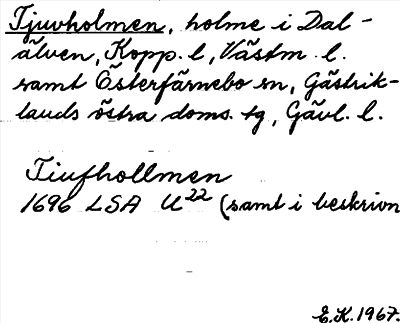 Tjuvholmen, holme i Dal-
älven, Kopp. l, Västm. l.
samt Österfärnebo sn, Gästrik-
lands östra doms. tg, Gävl. l.
Tiufhollmen
1696 LSA U22 (samt i beskrivn
E.K. 1967.